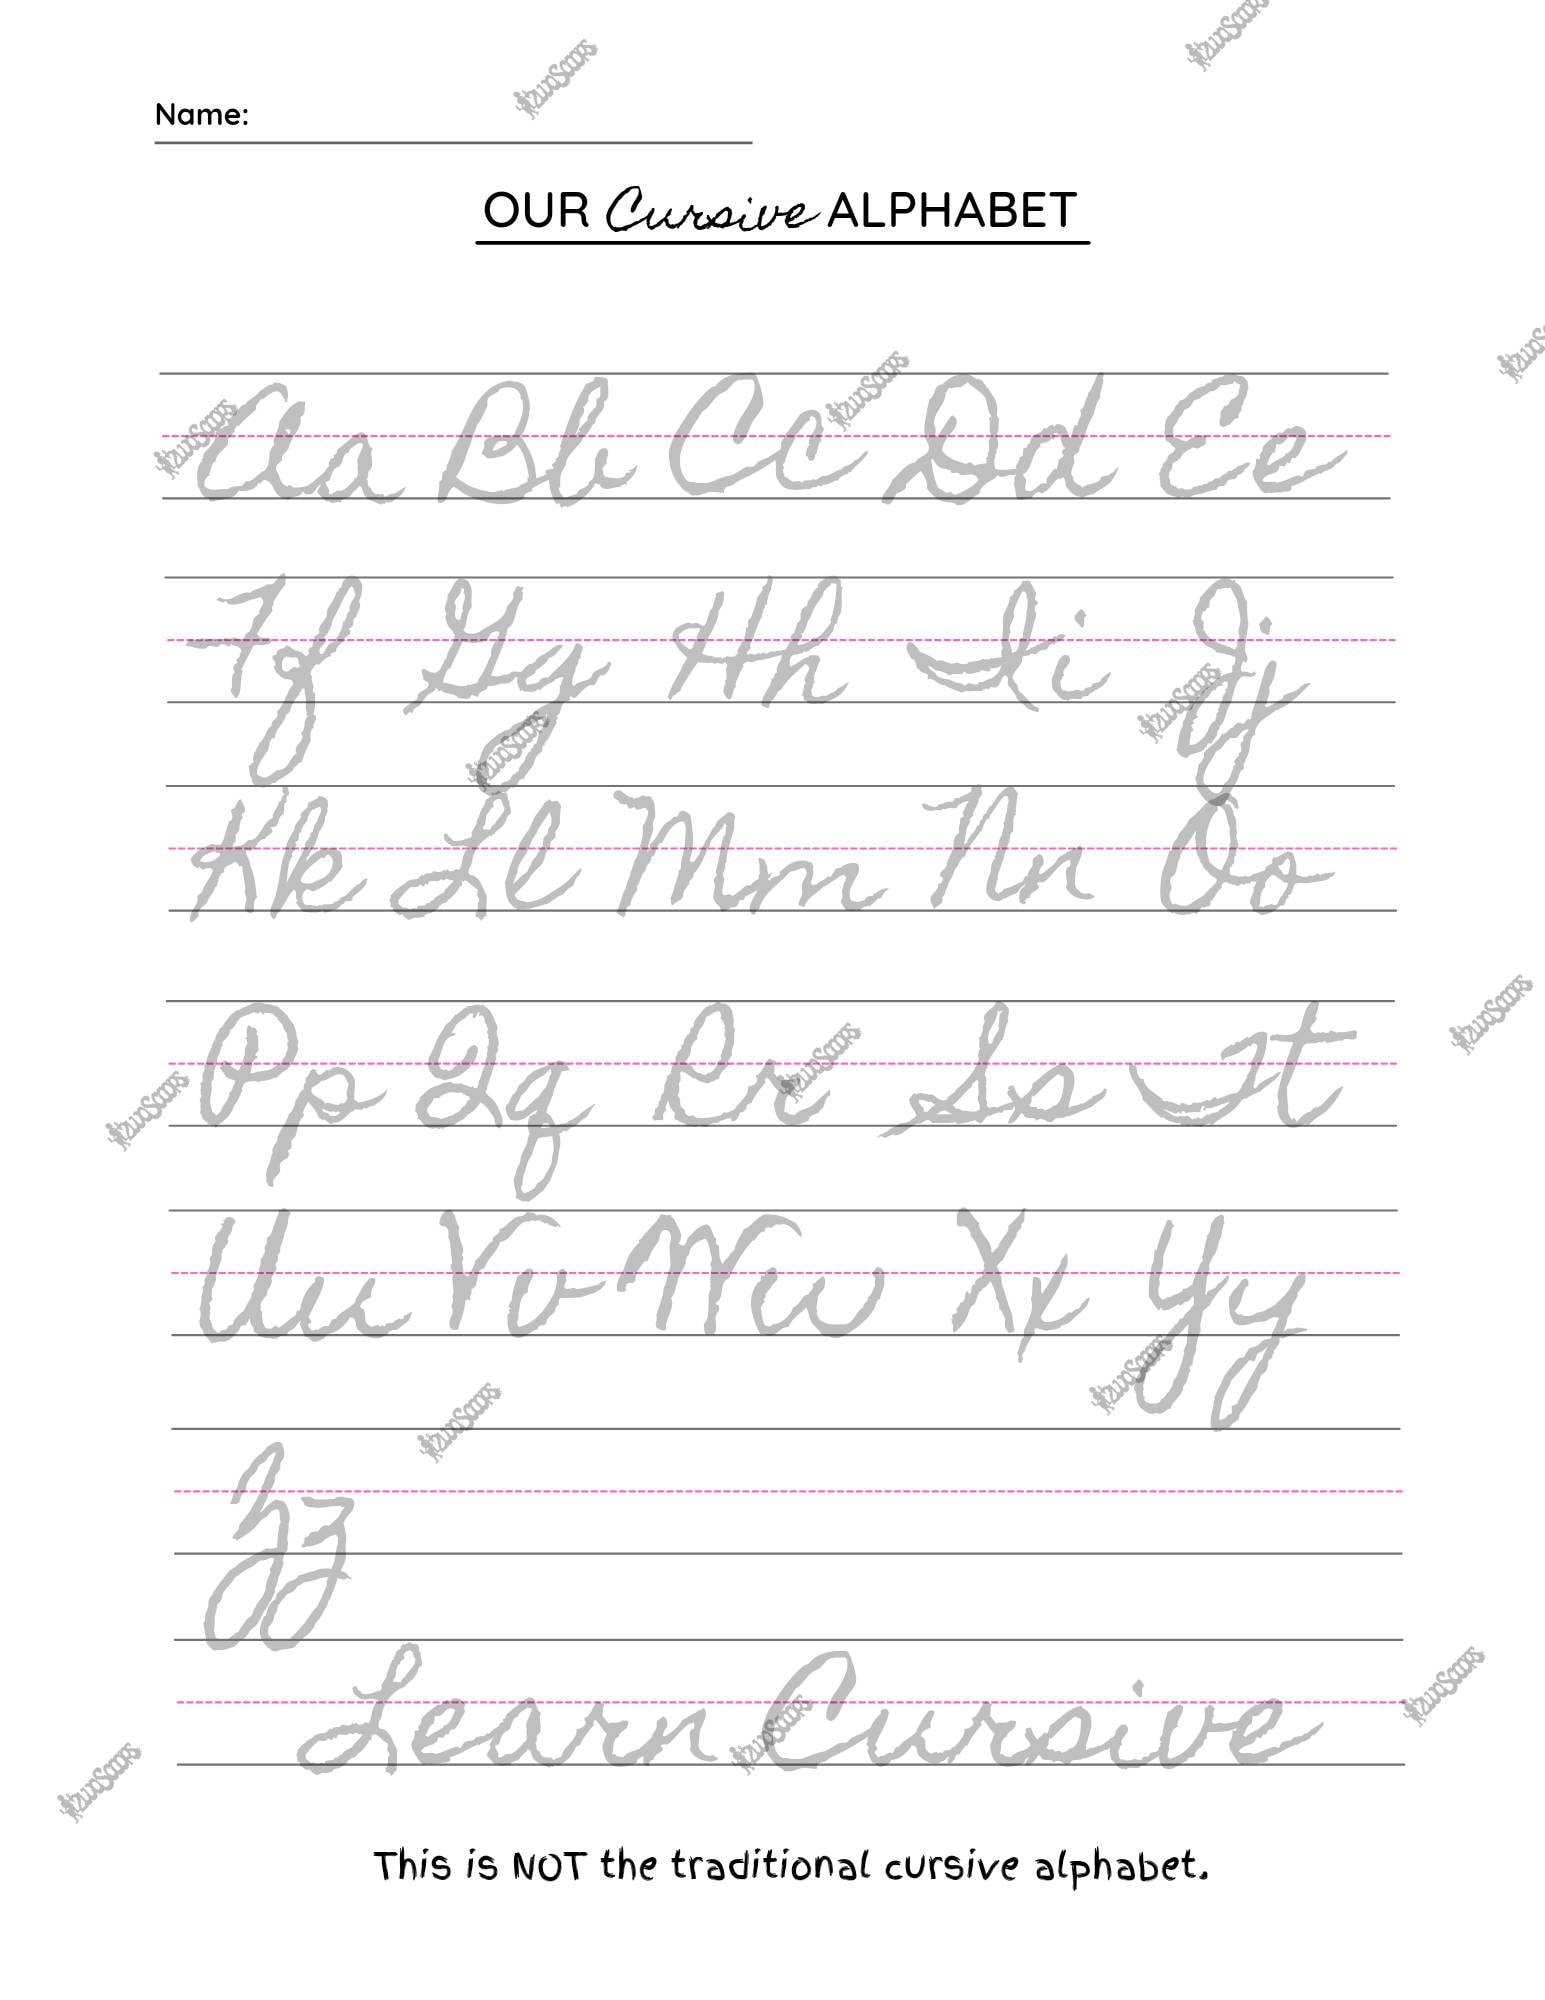 Name:
OUR Cursive ALPHABET
Aa Bb Cc Dd Ee
Ff Gg Hh Ii Jj
Kk Ll Mm Nn Oo
Pp Qq Rr Ss Tt
Uu Vv Ww Xx Yy
Zz
Learn Cursive
This is NOT the traditional cursive alphabet.